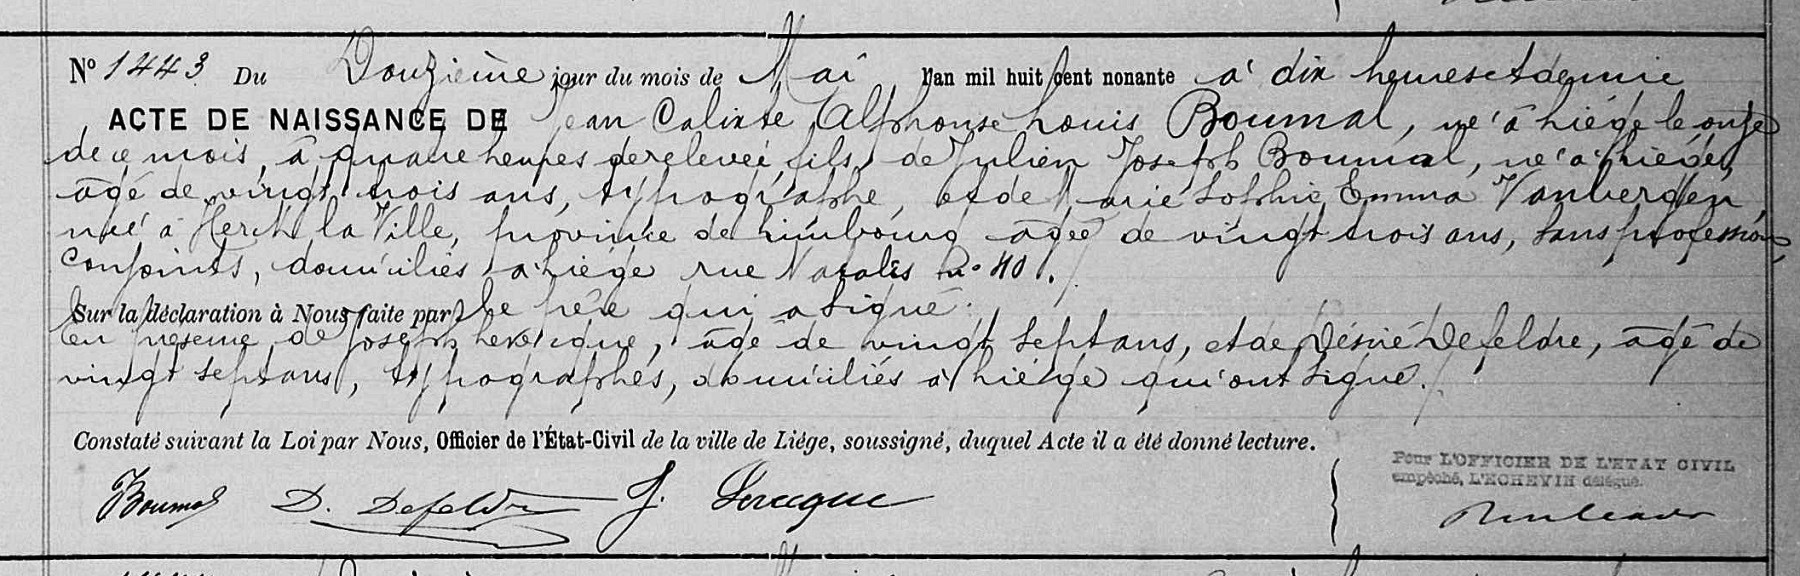 N° 1443 Du Douzième jour du mois de Mai l'an mil huit cent nonante à dix heures et demie
ACTE DE NAISSANCE DE Jean Calixte Alphonse Louis Boumal, né à Liége le onze
de ce mois, à quatre heures de relevée, fils de Julien Joseph Boumal, né à Liége,
âgé de vingt trois ans, typographe, et de Marie Sophie Emma Vanbergen,
née à Herck la Ville, province de Limbourg âgée de vingt trois ans, sans profession,
conjoints, domiciliés à Liége rue Natalis n° 40.
Sur la déclaration à Nous faite par le père qui a signé.
En présence de Joseph Levecque, âgé de vingt sept ans, et de Désiré Defeldre, âgé de
vingt sept ans, typographes, domiciliés à Liége qui ont signé.
Constaté suivant la Loi par Nous, Officier de l'État-Civil de la ville de Liége, soussigné, duquel Acte il a été donné lecture.
Pour L'OFFICIER DE L'ETAT CIVIL
empêché, L'ECHEVIN délégué.
Boumal D. Defeldre J.